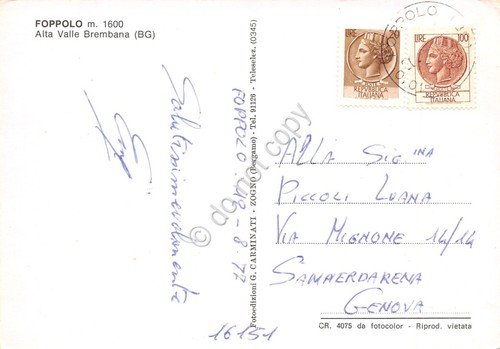 FOPPOLO m. 1600
Alta Valle Brembana (BG)
Salutissimevolmente
FOPPOLO 10-8-77
Fotoedizioni G. CARMINATI - ZOGNO (Bergamo) - Tel. 91126 - Teleselez. (0345)
do not copy
LIRE 20
POSTE
REPUBBLICA
ITALIANA
LIRE 100
REPUBBLICA
ITALIANA
FOPPOLO
ALLA SIG.INA
PICCOLI LUANA
VIA MIGNONE 14/14
SAMPIERDARENA
GENOVA
16151
CR. 4075 da fotocolor - Riprod. vietata